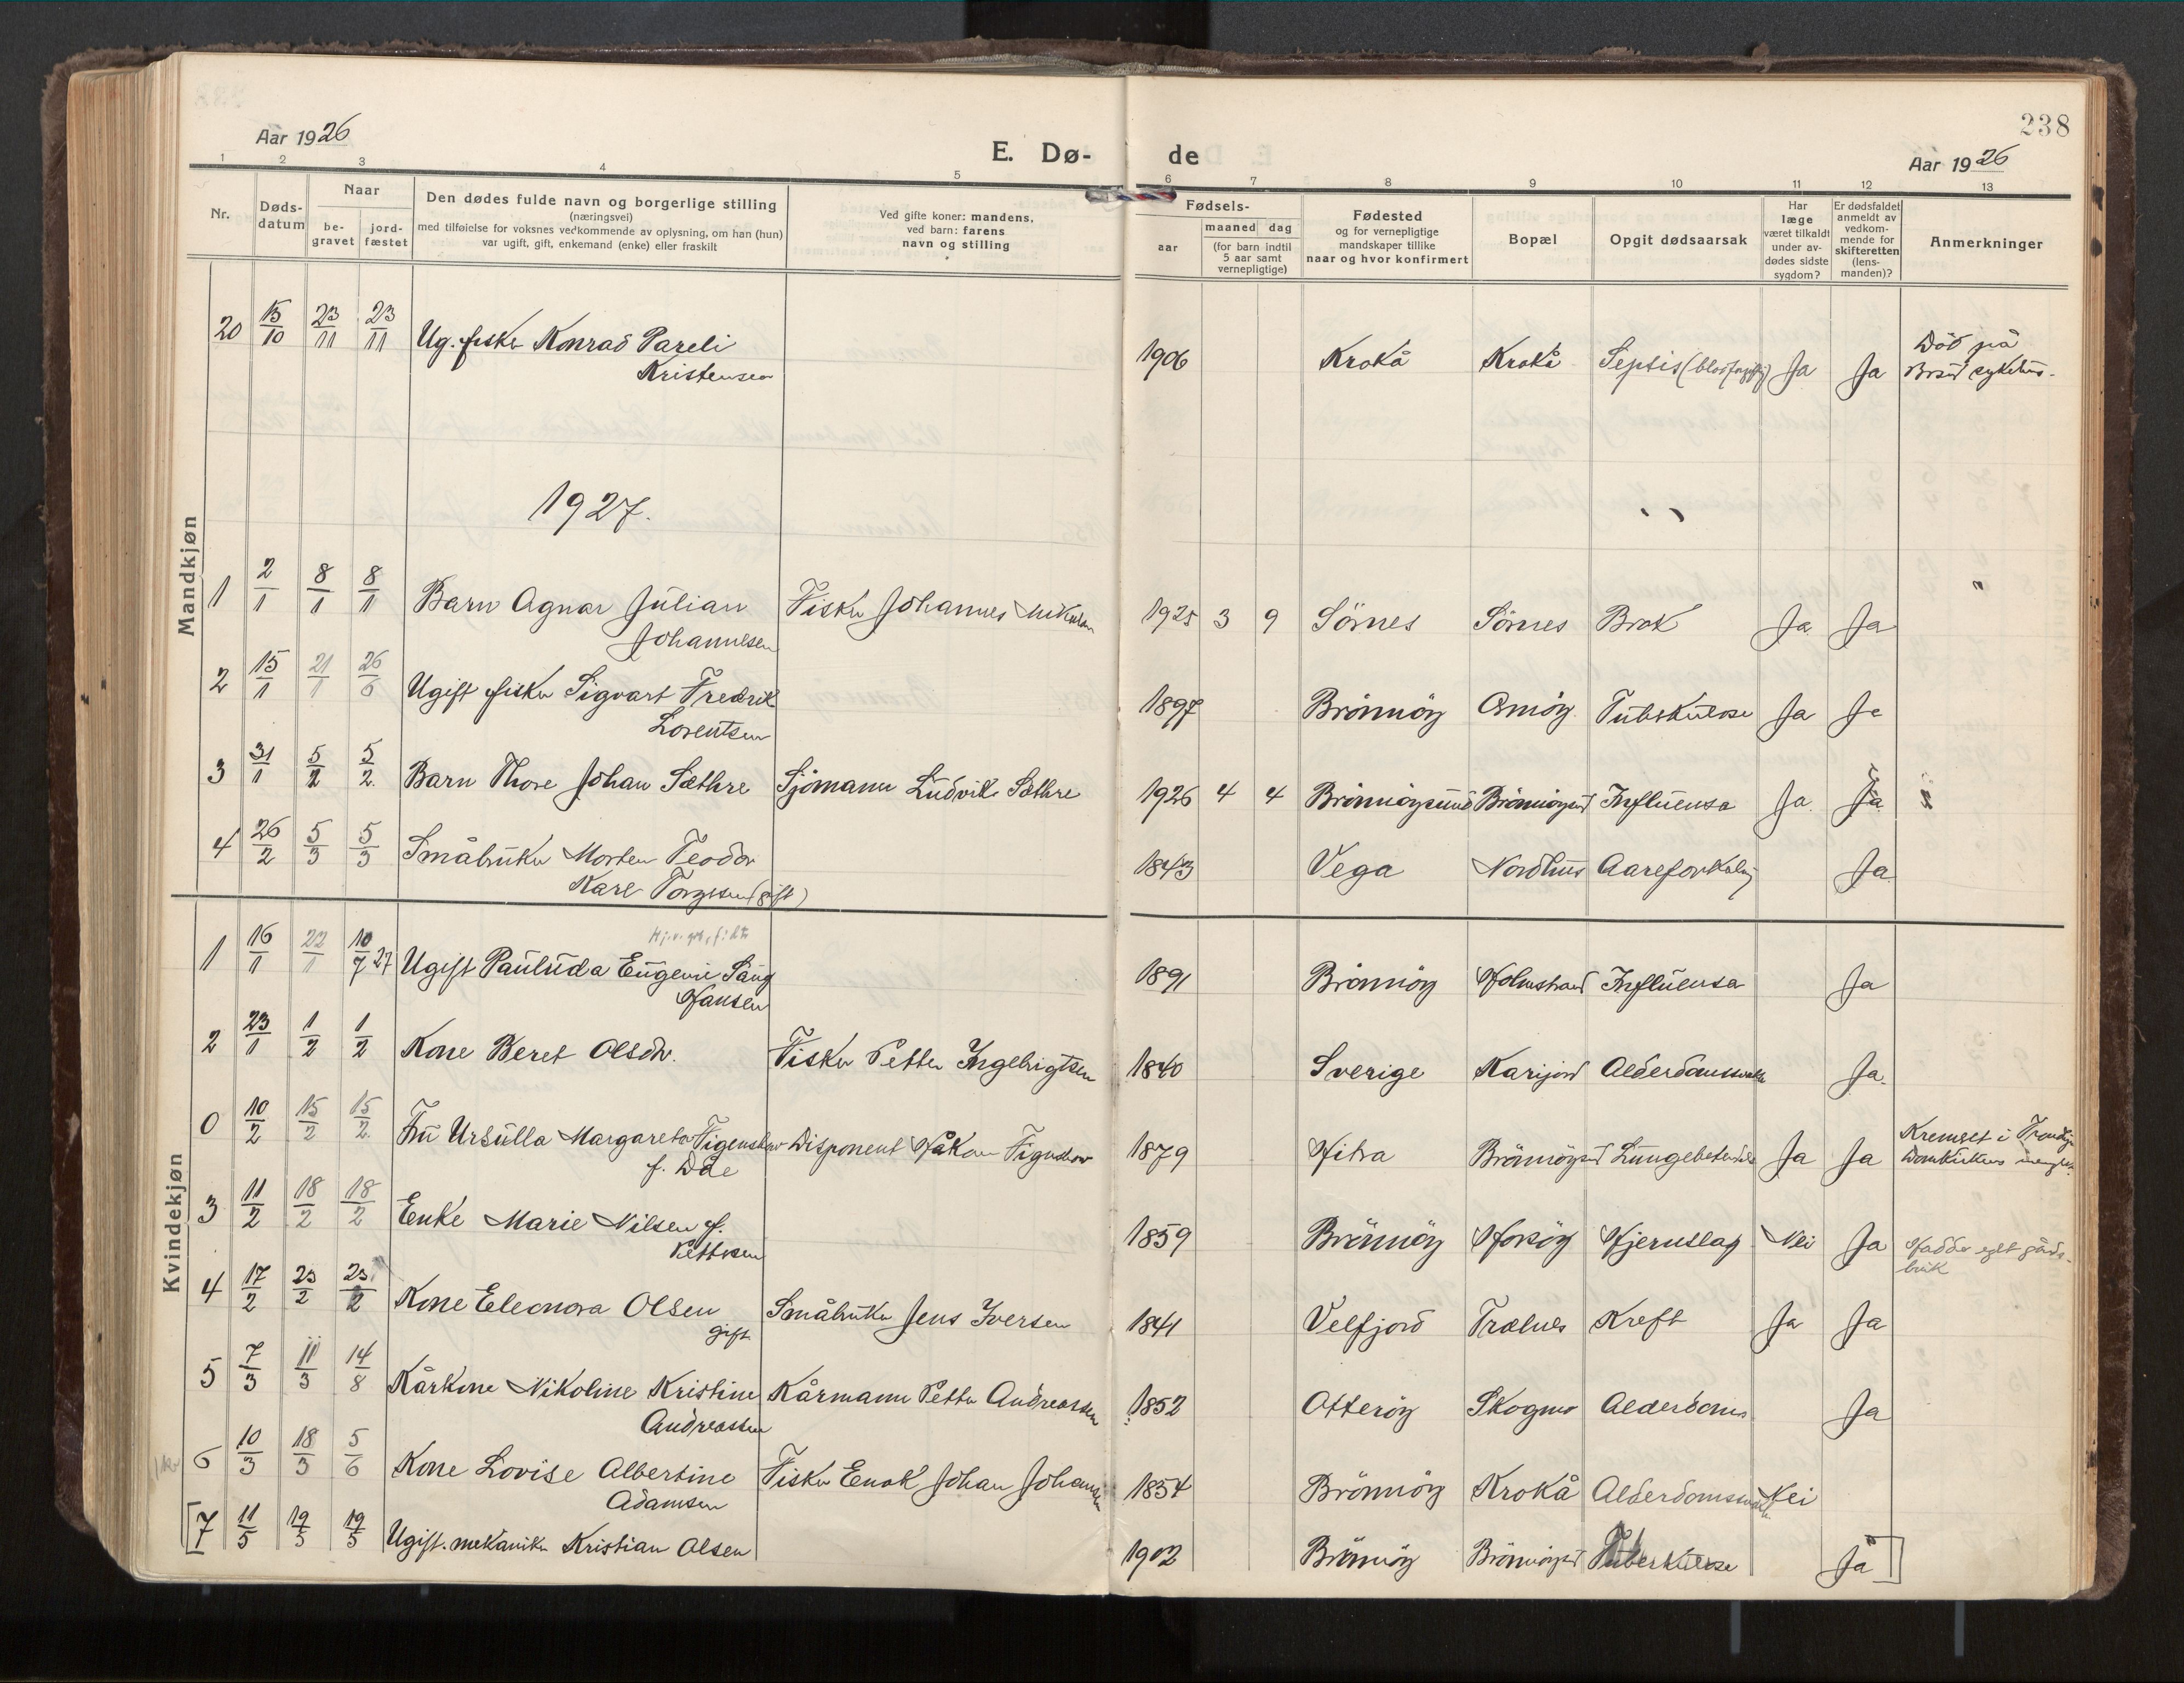 238
Aar 1926
E. Dø- de
Aar 1926
1 2 3 4 5 6 7 8 9 10 11 12 13
Nr.
Døds-
datum
Naar
be-
gravet
jord-
fæstet
Den dødes fulde navn og borgerlige stilling
(næringsvei)
med tilføielse for voksnes vedkommende av oplysning, om han (hun)
var ugift, gift, enkemand (enke) eller fraskilt
Ved gifte koner: mandens,
ved barn: farens
navn og stilling
Fødsels-
aar
maaned dag
(for barn indtil
5 aar samt
vernepligtige)
Fødested
og for vernepligtige
mandskaper tillike
naar og hvor konfirmert
Bopæl
Opgit dødsaarsak
Har
læge
været tilkaldt
under av-
dødes sidste
sygdom?
Er dødsfaldet
anmeldt av
vedkom-
mende for
skifteretten
(lens-
manden)?
Anmerkninger
Mandkjøn
20 15/10 23/11 23/11 Ug. fisker Konrad Pareli
Kristensen
1906 Krokå Krokå Septis (blodforgiftg) Ja Ja
Död på
Brsund sykehus.
1927.
1 2/1 8/1 8/1 Barn Agnar Julian
Johannesen
Fisker Johannes Mikalsen 1925 3 9 Sörnes Sörnes Brok Ja Ja
2 15/1 21/1 26/6 Ugift fisker Sigvart Fredrik
Lorentsen
1897 Brönnöy Tuberkulose Ja Ja
3 31/1 5/2 5/2 Barn Thore Johan Sæthre Sjömann Ludvik Sæthre 1926 4 4 Brönnöysund Brönnöysund Influensa Ja Ja
4 26/2 5/3 5/3 Småbruker Morten Teodor
Karl Torgersen (gift)
1843 Vega Nordhus Aareforkalkn Ja
Kvindekjøn
1 16/1 22/1 10/7 27 Ugift Paulüda Eugenie Säng
Hansen
1891 Brönnöy Holmstrand Influensa Ja
2 23/1 1/2 1/2 Kone Beret Olsdtr. Fisker Petter Ingebrigtsen 1840 Sverige Karijord Alderdomssvakhet Ja
0 10/2 15/2 15/2 Fru Ursulla Margareta Figenschow
f. Dåe
Disponent Håkon Figenschow 1879 Hitra Brönnöysund Lungebetendelse Ja Ja
Kremert i Trondhjem
3 11/2 18/2 18/2 Enke Marie Nilsen f.
Pettersen
1859 Brönnöy Horsöy Hjerneslag Nei Ja
Hadde eget gårds-
bruk
4 17/2 23/2 23/2 Kone Eleonora Olsen
gift
Småbruker Jens Iversen 1841 Velfjord Trælnes Kreft Ja Ja
5 7/3 11/3 14/8 Kårkone Nikoline Kristine
Andreassen
Kårmann Petter Andreassen 1852 Otteröy Skogmo Alderdoms Ja
6 10/3 18/3 5/6 Kone Lovise Albertine
Adamsen
Fisker Enok Johan Johansen 1854 Brönnöy Krokå Alderdomssvakh. Nei
[7 11/5 19/5 19/5 Ugift. mekaniker Kristian Olsen 1902 Brönnöy Brönnöysd Tuberkulose Ja]